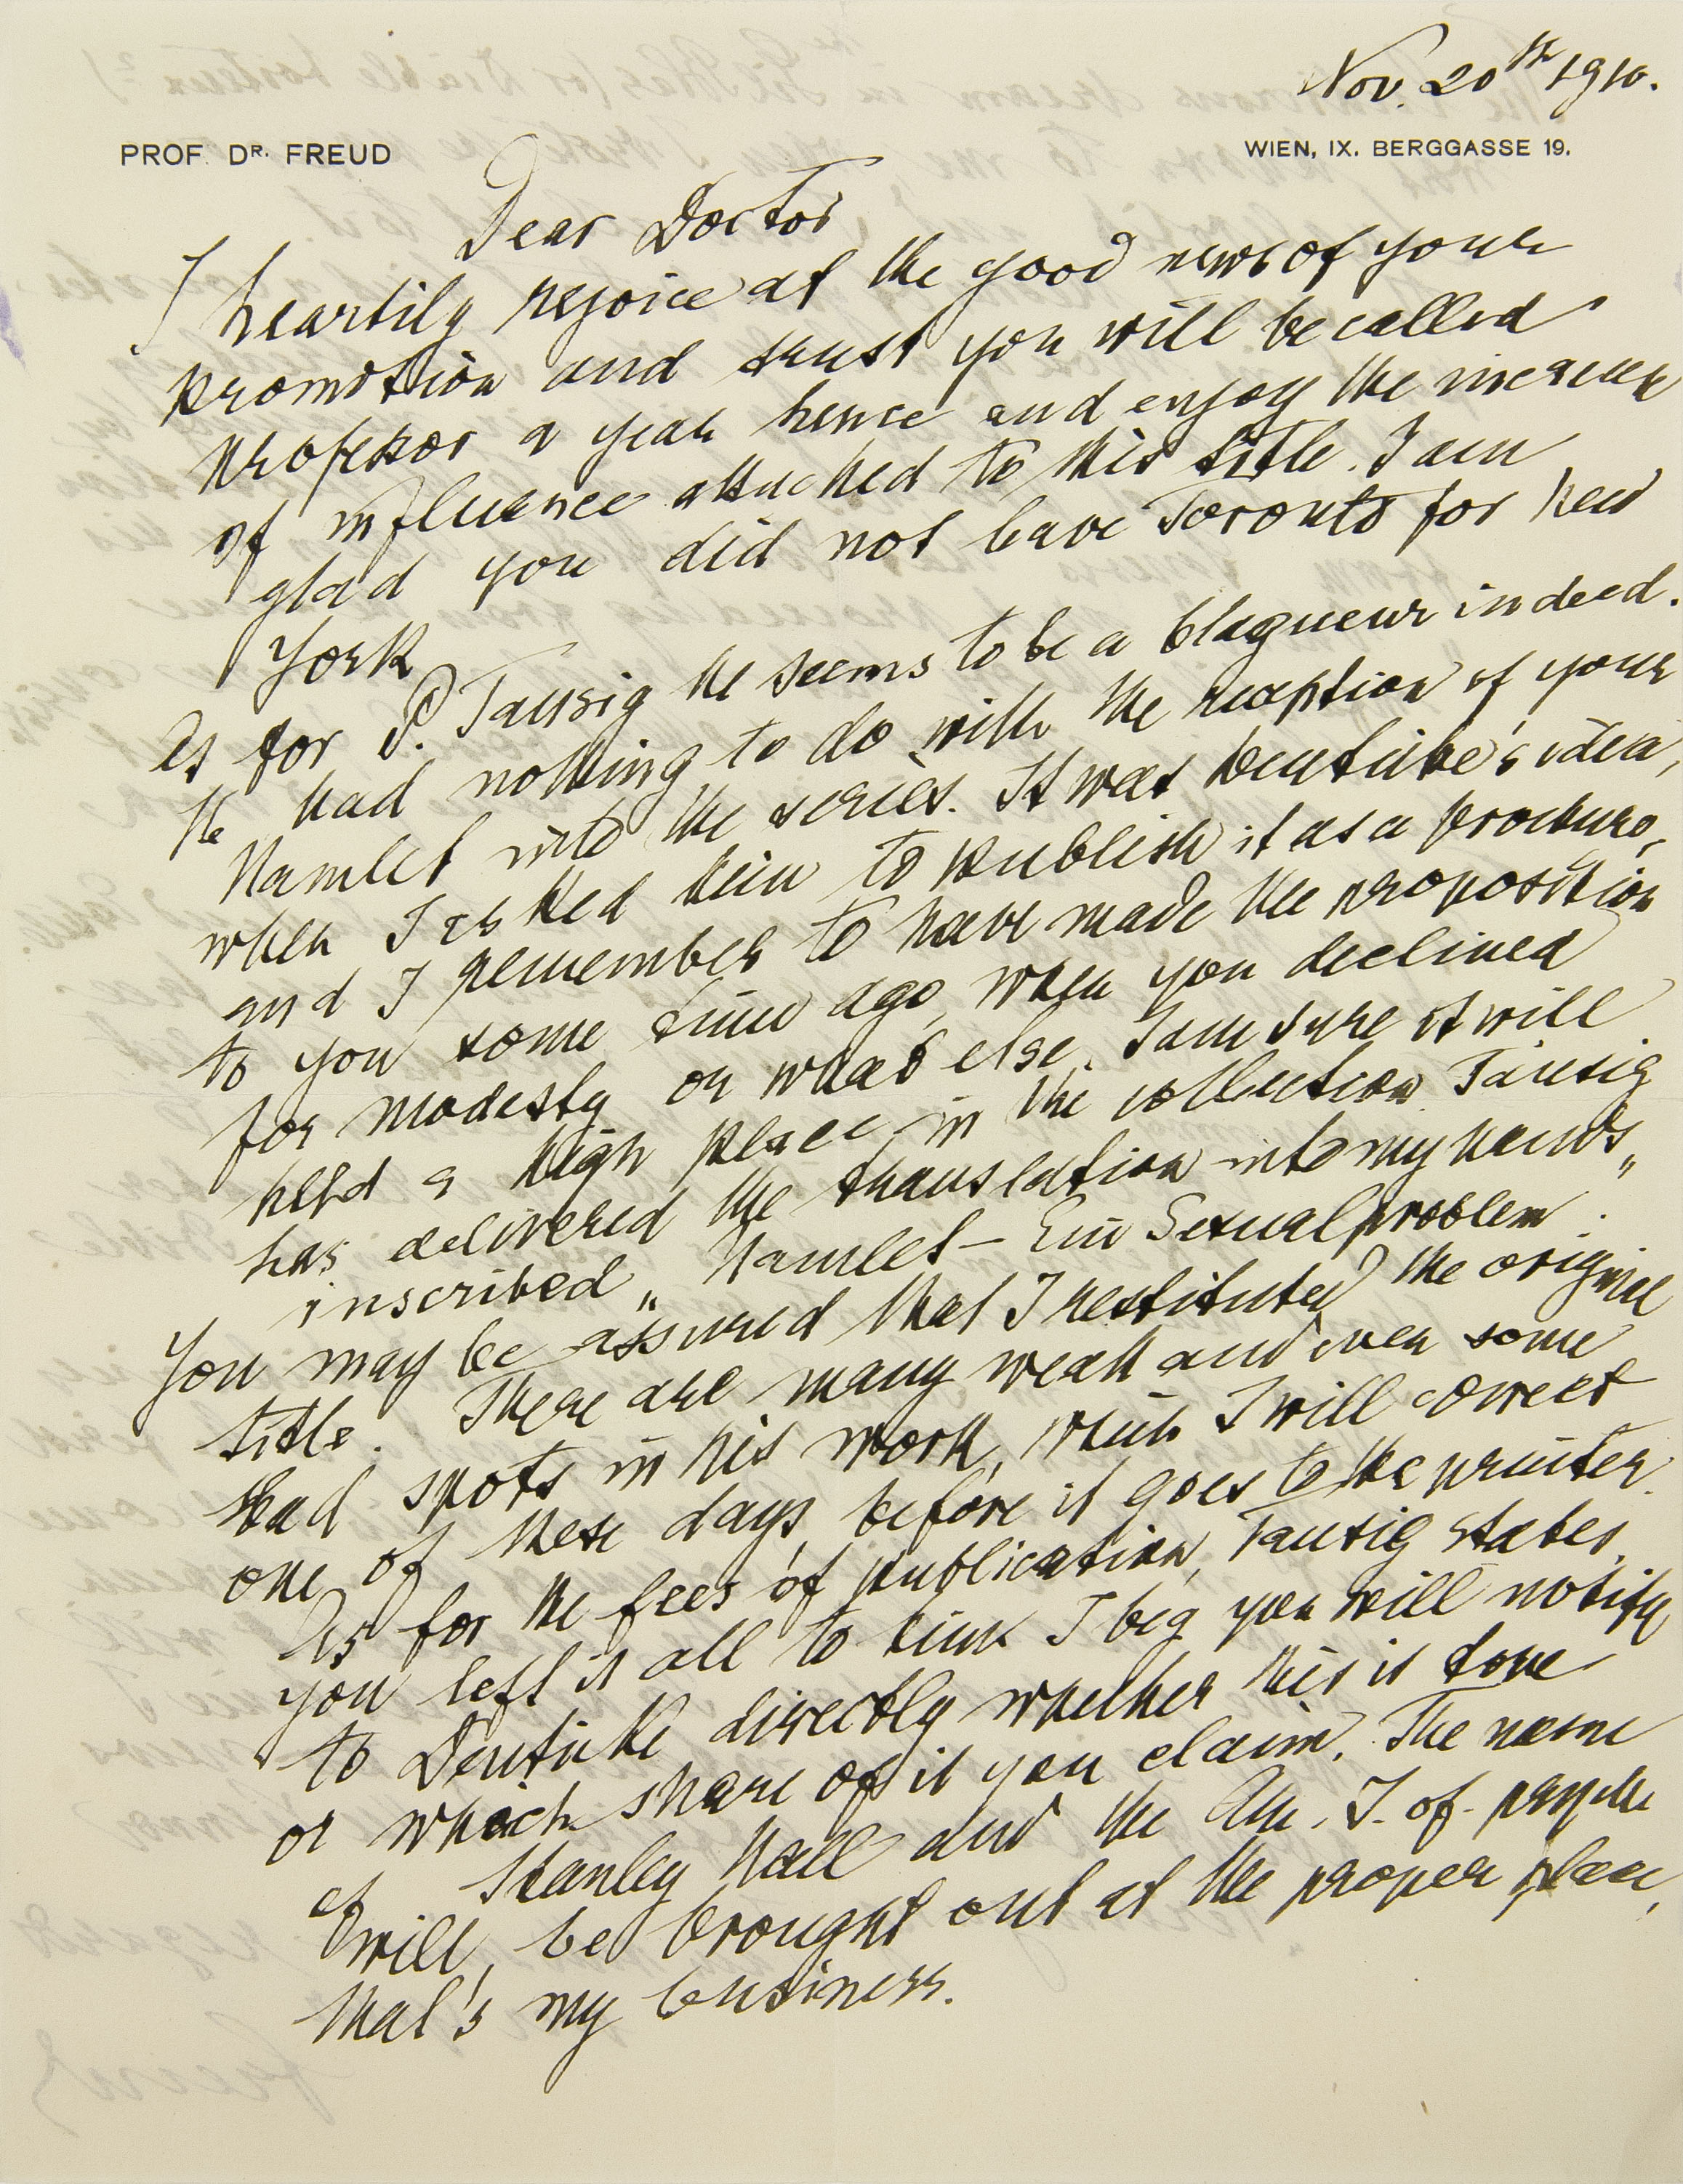 Nov. 20th 1910.
PROF. DR. FREUD
WIEN, IX. BERGGASSE 19.
Dear Doctor
I heartily rejoice at the good news of your
promotion and trust you will be called
Professor a year hence and enjoy the increase
of influence attached to this title. I am
glad you did not leave Toronto for New
York
As for P. Tausig he seems to be a blagueur indeed.
He had nothing to do with the reception of your
Hamlet into the series. It was Deuticke's idea,
when I asked him to publish it as a brochure,
and I remember to have made the proposition
to you some time ago, when you declined
for modesty or what else. I am sure it will
hold a high place in the collection. Tausig
has delivered the translation into my hands,
inscribed „Hamlet – Ein Sexualproblem".
You may be assured that I restituted the original
title. There are many weak and even some
bad spots in his work, which I will correct
one of these days, before it goes to the printer.
As for the fees of publication, Tausig states,
you left it all to him. I beg you will notify
to Deuticke directly whether this is done
or which share of it you claim. The name
of Stanley Hall and the Am. J. of psych
will be brought out at the proper place,
that's my business.